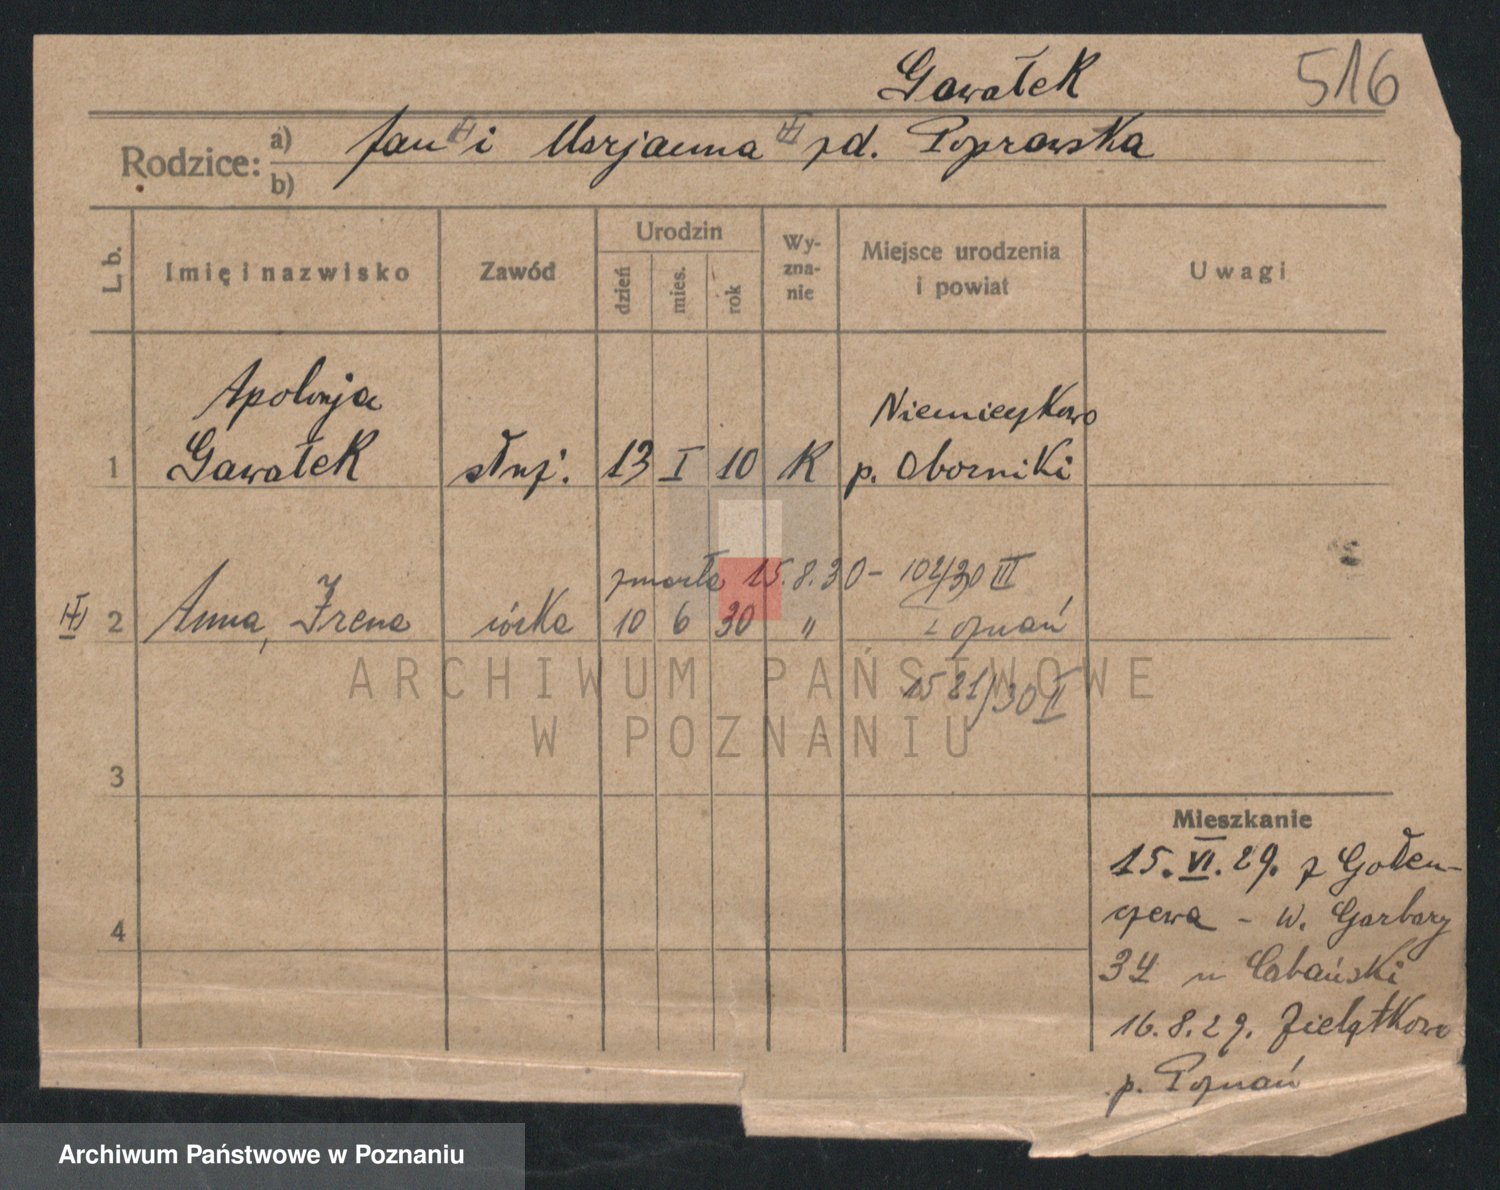 Gawałek
516
Rodzice: a) b)
Jan i Marjanna zd. Poprawska
L. b. Imię i nazwisko Zawód Urodzin dzień mies. rok Wy-zna-nie Miejsce urodzenia i powiat Uwagi
Apolonja Niemieczkowo
1 Gawałek służ. 13 I 10 K p. Oborniki
zmarła 15.8.30 - 102/30 III
2 Anna, Irena córka 10 6 30 " Poznań
1521/30 II
3
Mieszkanie
15.VI.29. z Gołen-
4 czewa - W. Garbary
34 u Cabański
16.8.29. Zielątkowo
p. Poznań
ARCHIWUM PAŃSTWOWE
W POZNANIU
Archiwum Państwowe w Poznaniu